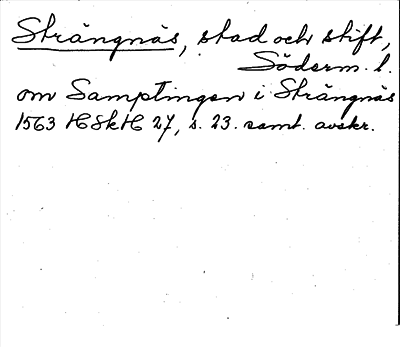 Strängnäs, stad och stift,
Söderm. l.
om Samptingen i Strängnäs
1563 HSkH 27, s. 23. samt. avskr.